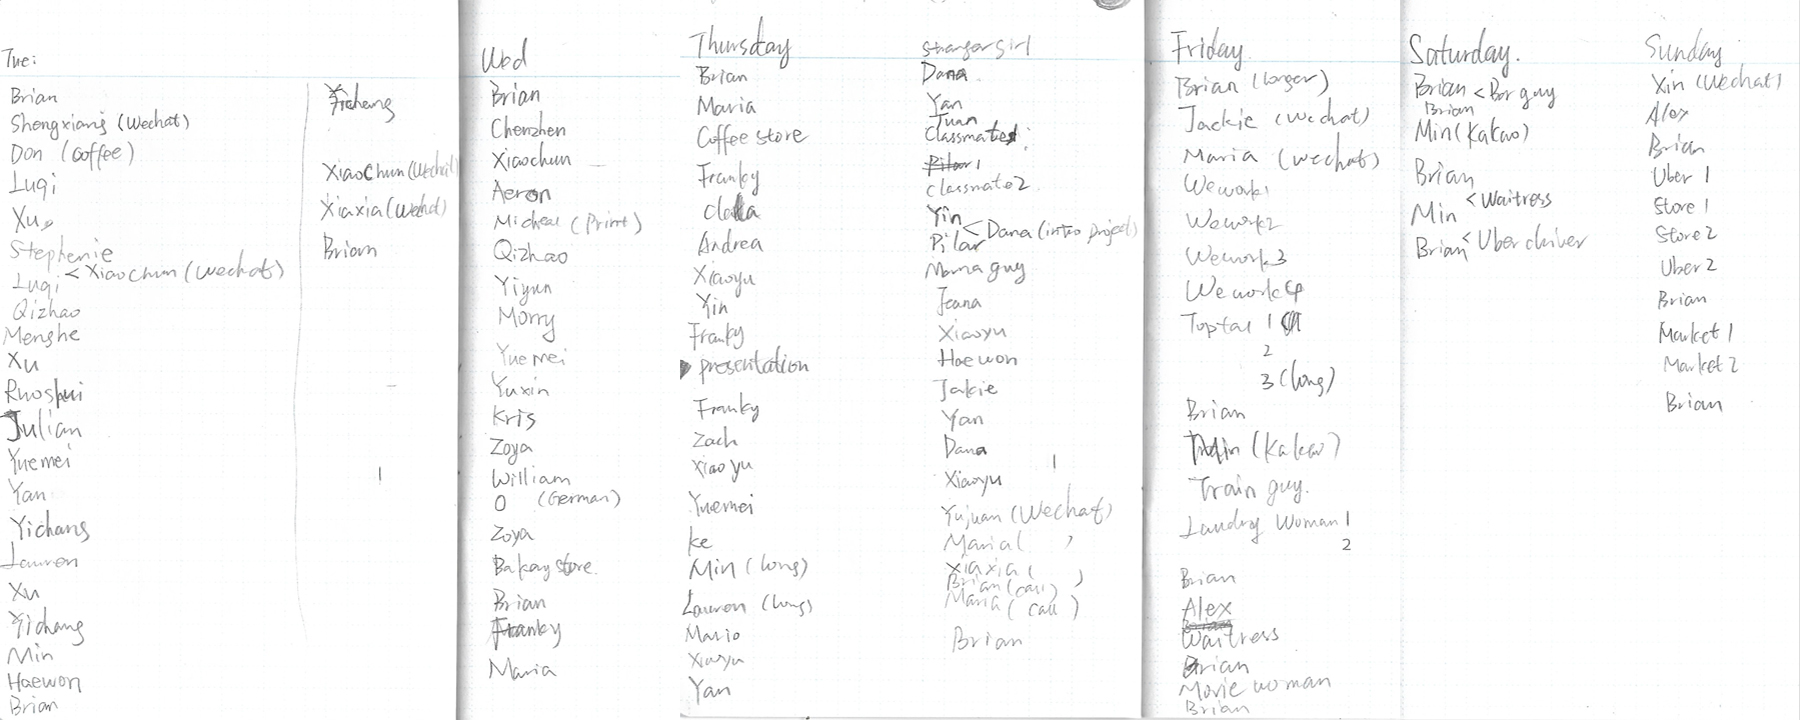 Tue:
Brian
Shengxiang (Wechat)
Don (Coffee)
Luqi
Xu
Stephenie
Luqi < Xiaochun (Wechat)
Qizhao
Menghe
Xu
Ruoshui
Julian
Yuemei
Yan
Yichang
Lauren
Xu
Yichang
Min
Haewon
Brian
Yichang
XiaoChun (Wechat)
Xiaxia (Wechat)
Brian
Wed
Brian
Chenzhen
Xiaochun
Aeron
Micheal (Print)
Qizhao
Yiyun
Morry
Yuemei
Yuxin
Kris
Zoya
William
O (German)
Zoya
Bakery store
Brian
Franky
Maria
Thursday
Brian
Maria
Coffee store
Franky
Andrea
Xiaoyu
Yin
Franky
presentation
Franky
Zach
Xiaoyu
Yuemei
Ke
Min (long)
Lauren (long)
Mario
Xiaoyu
Yan
stranger girl
Dana
Yan
Juan
classmate1
classmate2
Yin
Pilar < Dana (intro project)
Mama guy
Jeana
Xiaoyu
Haewon
Jakie
Yan
Dana
Xiaoyu
Yujuan (Wechat)
Maria ( )
Xiaxia ( )
Brian (call)
Maria (call)
Brian
Friday
Brian (longer)
Jackie (Wechat)
Maria (Wechat)
Wework1
Wework2
Wework3
Wework4
Toptal 1
2
3 (long)
Brian
Min (Kakao)
Train guy.
Landry Woman 1
2
Brian
Alex
Waitress
Brian
Movie woman
Brian
Saturday.
Brian < Bar guy
Brian
Min (Kakao)
Brian
Min < Waitress
Brian < Uber driver
Sunday
Xin (Wechat)
Alex
Brian
Uber 1
Store 1
Store 2
Uber 2
Brian
Market 1
Market 2
Brian